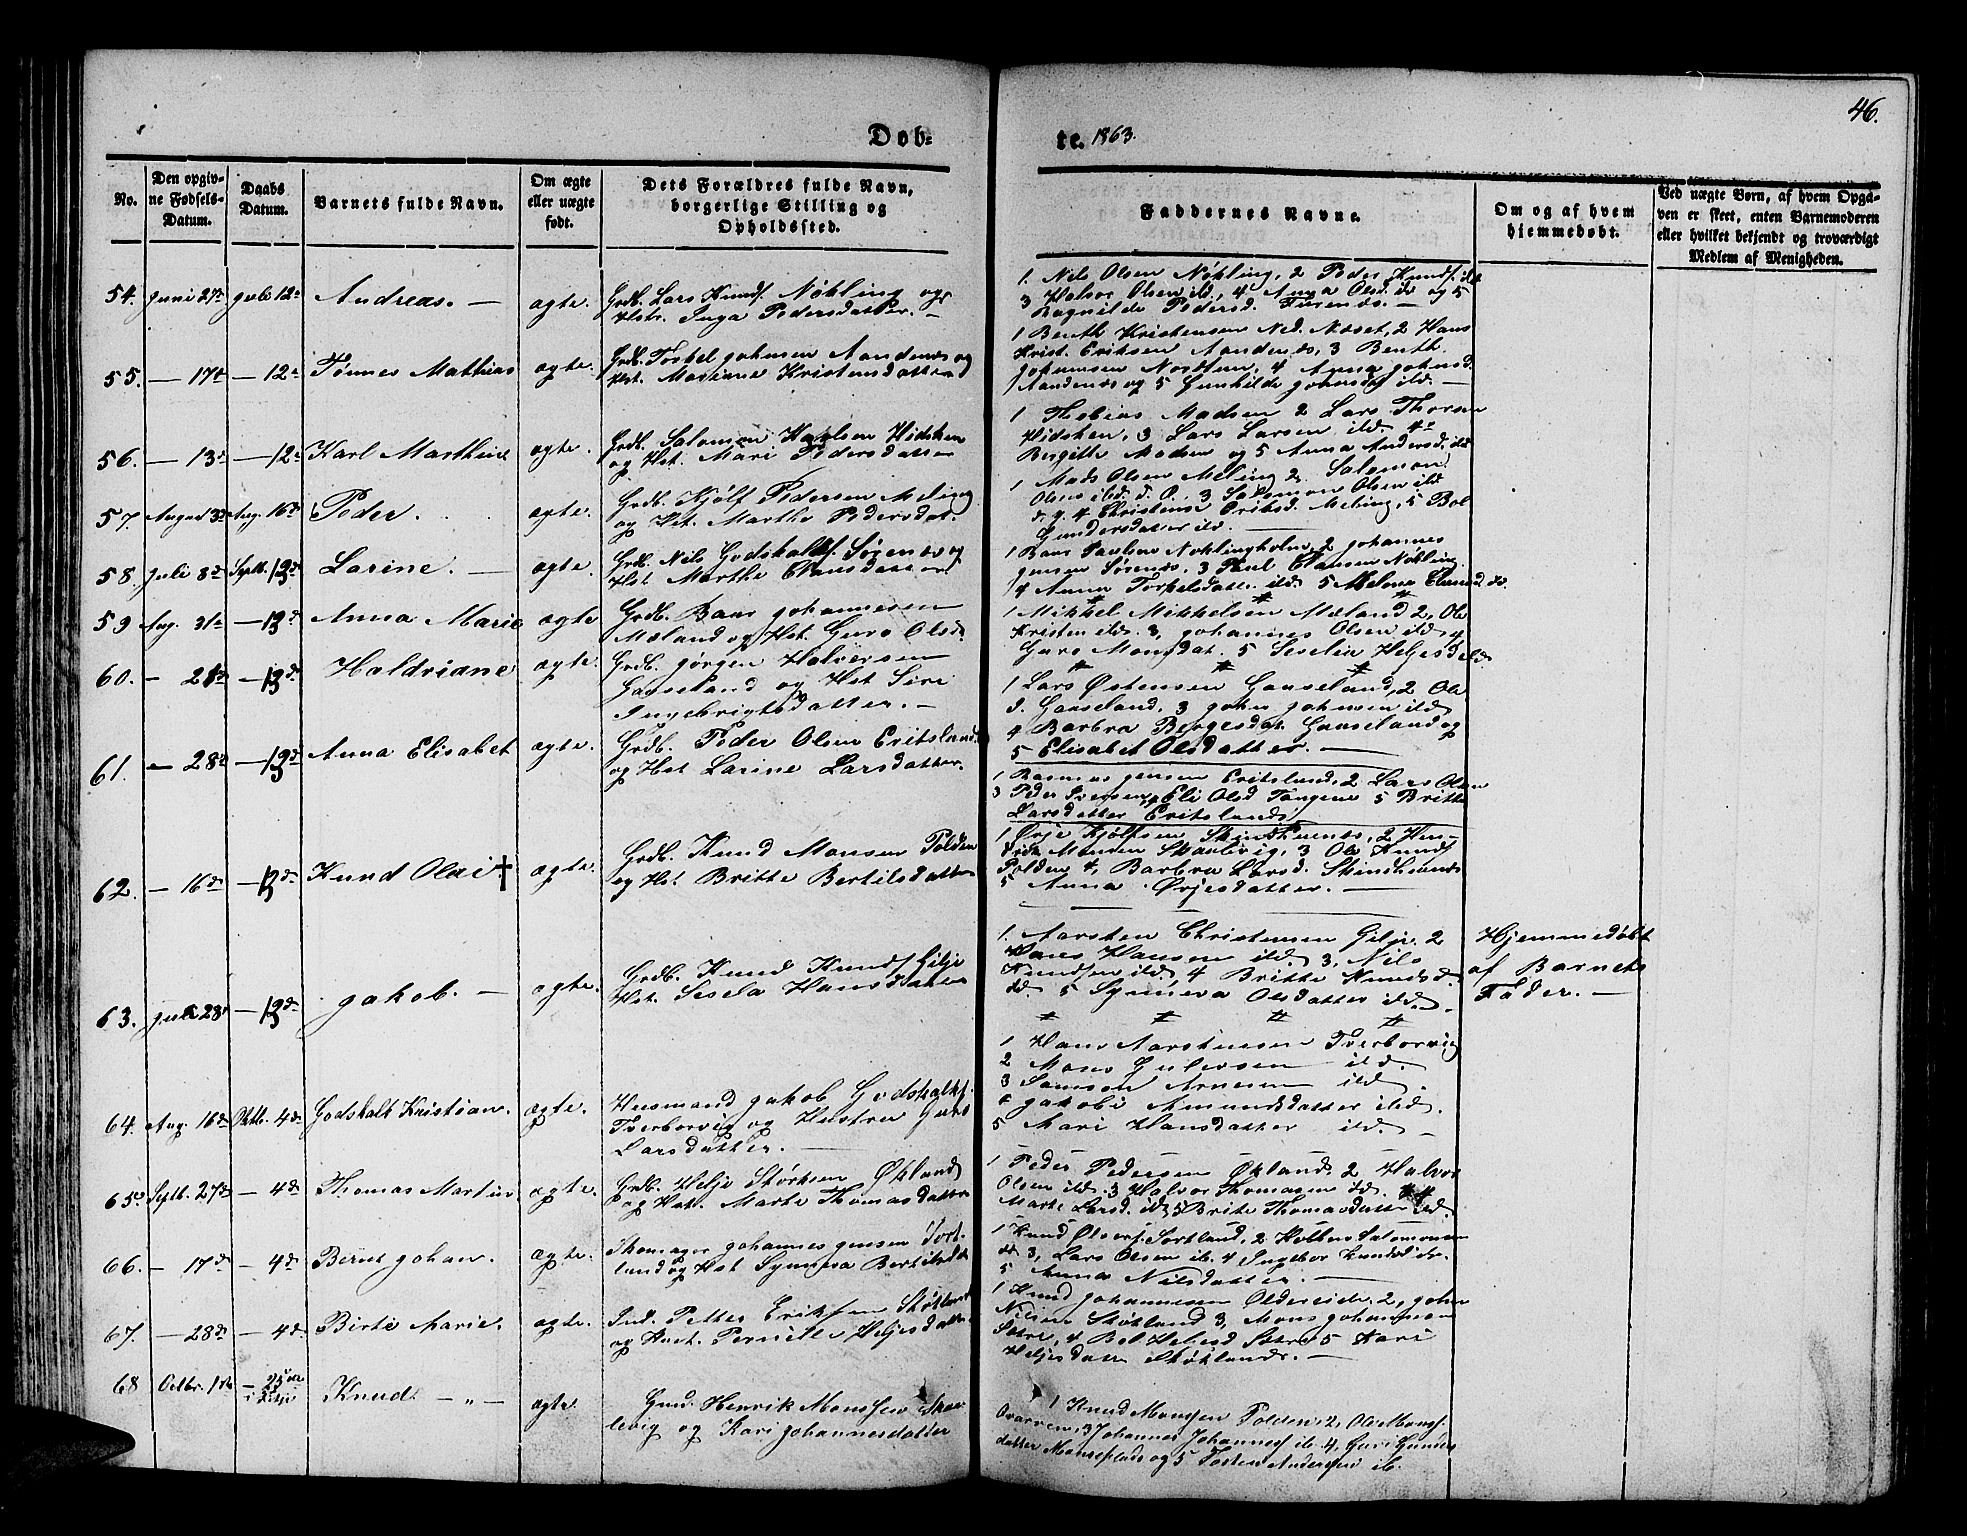 46.
Døb-
te. 1863.
No.
Den opgiv-
ne Fødsels-
Datum.
Daabs
Datum.
Barnets fulde Navn.
Om ægte
eller uægte
født.
Dets Forældres fulde Navn,
borgerlige Stilling og
Opholdssted.
Faddernes Navne.
Om og af hvem
hjemmedøbt.
Ved uægte Børn, af hvem Opga-
ven er skeet, enten Barnemoderen
eller hvilket bekjendt og troværdigt
Medlem af Menigheden.
54. Juni 27de Juli 12te Andreas. — ægte.
Grdb. Lars Knuds. Nøkling og
Hstr. Inga Pedersdatter. —
1. Nils Olsen Nøkling, 2 Peder Knuds. ild
3 Halvor Olsen ild, 4 Anna Olsd. ild og 5
Ragnilde Pedersd.
55. — 17de — 12te Tønnes Mathias ægte.
Grdb. Torkel Johnsen Aandenes og
Hst. Martine Kristensdatter
1 Benth Kristensen Ned. Næset, 2 Hans
Krist. Eriksen Aandenes, 3 Benth
Johannesen 4 Anna Johnsd.
Aandenes og 5 Gunhilde Johnsdat ild. —
56. — 13de — 12te Karl Marthin ægte.
Grdb. Salomon Hidsken
og Hst. Mari Pedersdatter
1 Thobias Madsen 2 Lars Thorsen
Hidsken, 3 Lars Larsen ild. 4
Bergitte Madsen og 5 Anna Andersd. ild
57. August 3de Aug. 16de Peder. ægte.
Grdb. Kjølf Pedersen Meling
og Hst. Marthe Pedersdat.
1 Mads Olsen Meling 2. Salomon
Olsen ild. 3 Salomon Olsen ild
4 Christense Eriksd. Meling, 5 Bol
Gundersdatter ild. —
58. Juli 8de Septb. 13de Larine. — ægte.
Grdb. Nils Godskalks. Sørenes og
Hst Marthe Clausdatter
1 Baar Paulsen Nøklingholm, 2 Johannes
Jensen Sørenes, 3 Paul Clausen Nøkling
4 Anna Torkelsdatter ild 5
59 Aug. 31te — 13de Anna Marie ægte
Grdb. Baar Johannesen
Mæland og Hst. Guro Olsd.
1 Mikkel Mikkelsen Mæland 2, Ole
Kristen ild. 3, Johannes Olsen ild 4
Guro Monsdat. 5 Seselia Heljesd ild
60. — 28de — 13de Haldriane ægte.
Grdb. Jørgen Halversen
Gaaseland og Hst Siri
Ingebrigtsdatter. —
1 Lars Østensen Gaaseland, 2 Ole
J. Gaaseland, 3 John Johnsen ild
4 Barbra Børgesdat. Gaaseland og
5 Elisabet Olsdatter. —
61. — 28de — 13de Anna Elisabet ægte.
Grdb. Peder Olsen Eritsland
og Hst Larine Larsdatter.
1 Rasmus Jensen Eritsland, 2 Lars Olsen
3 Peder Iversen, 4 Eli Olsd Tangene 5 Britte
Larsdatter Eritsland
62. — 16de — 13de Knud Olai † ægte.
Grdb. Knud Monsen Polden
og Hst Britte Bertilsdatter
1, Ørje Kjølfsen Skinshenes, 2, Hen-
rik Monsen Skarlevig, 3 Ole Knuds
Polden 4, Barbra Larsd. Skinshenes
5 Anna Ørjesdatter. —
63. Juli 28de — 13de Jakob. — ægte.
Grdb. Knud Knuds Gilje
Hst. Sesela Hansdatter
1. Aarsten Christensen Gilje. 2
Hans Hansen ild. 3, Nils
Knudsen ild. 4 Britte Knudsd.
ild. 5 Synneva Olsdatter ild. —
Hjemmedøbt
af Barnets
Fader. —
64. Aug. 16de Oktb. 4de Godskalk Kristian. ægte.
Husmand Jakob Godskalks.
Tverborvig og Hustru Guro
Larsdatter. —
1 Hans Aarstensen Tverborvig
2 Mons Gulevsen — ild.
3 Samson Arnesen ild.
4 Jakobi Amundsdatter ild.
5 Mari Hansdatter ild. —
65. Septb. 27de — 4de Thomas Martin ægte.
Grdb. Helje Størksen Økland
og Hst. Marte Thomasdatter
1 Peder Pedersen Økland, 2 Halvor
Olsen ild. 3 Halvor Thomasen ild. 4
Marte Larsd. ild, 5 Brite Thomasdatter ild.
66. — 17de — 4de Bernt Johan. ægte.
Skomager Johannes Jensen Sort-
land og Hst Synneva Bertilsdt.
1 Knud Olsen Sortland, 2 Salomonsen
3, Lars Olsen ib. 4 Ingebor Knudsd. ib.
5 Anna Nilsdatter. —
67. — 28de — 4de Birte Marie. ægte.
Ind. Petter Eriksen Støkland
og Hust. Pernille Heljesdatter
1 Knud Johannesen Oldereide, 2, John
Nilsen Støkland 3, Mons Johannesen
Sætre, 4, Bol Heljesd Sætre 5 Kari
Heljesdatter Støkland. —
68 Octbr. 1ste — 25de Knud — „ — ægte.
Gmd. Henrik Monssen Skar-
levig og Kari Johannesdatter
1 Knud Monssen Polden, 2, Ole Monss.
3 Johannes Johanness. ib. 4, Guri Gunder
datter og 5 Tosten Andersen ib.